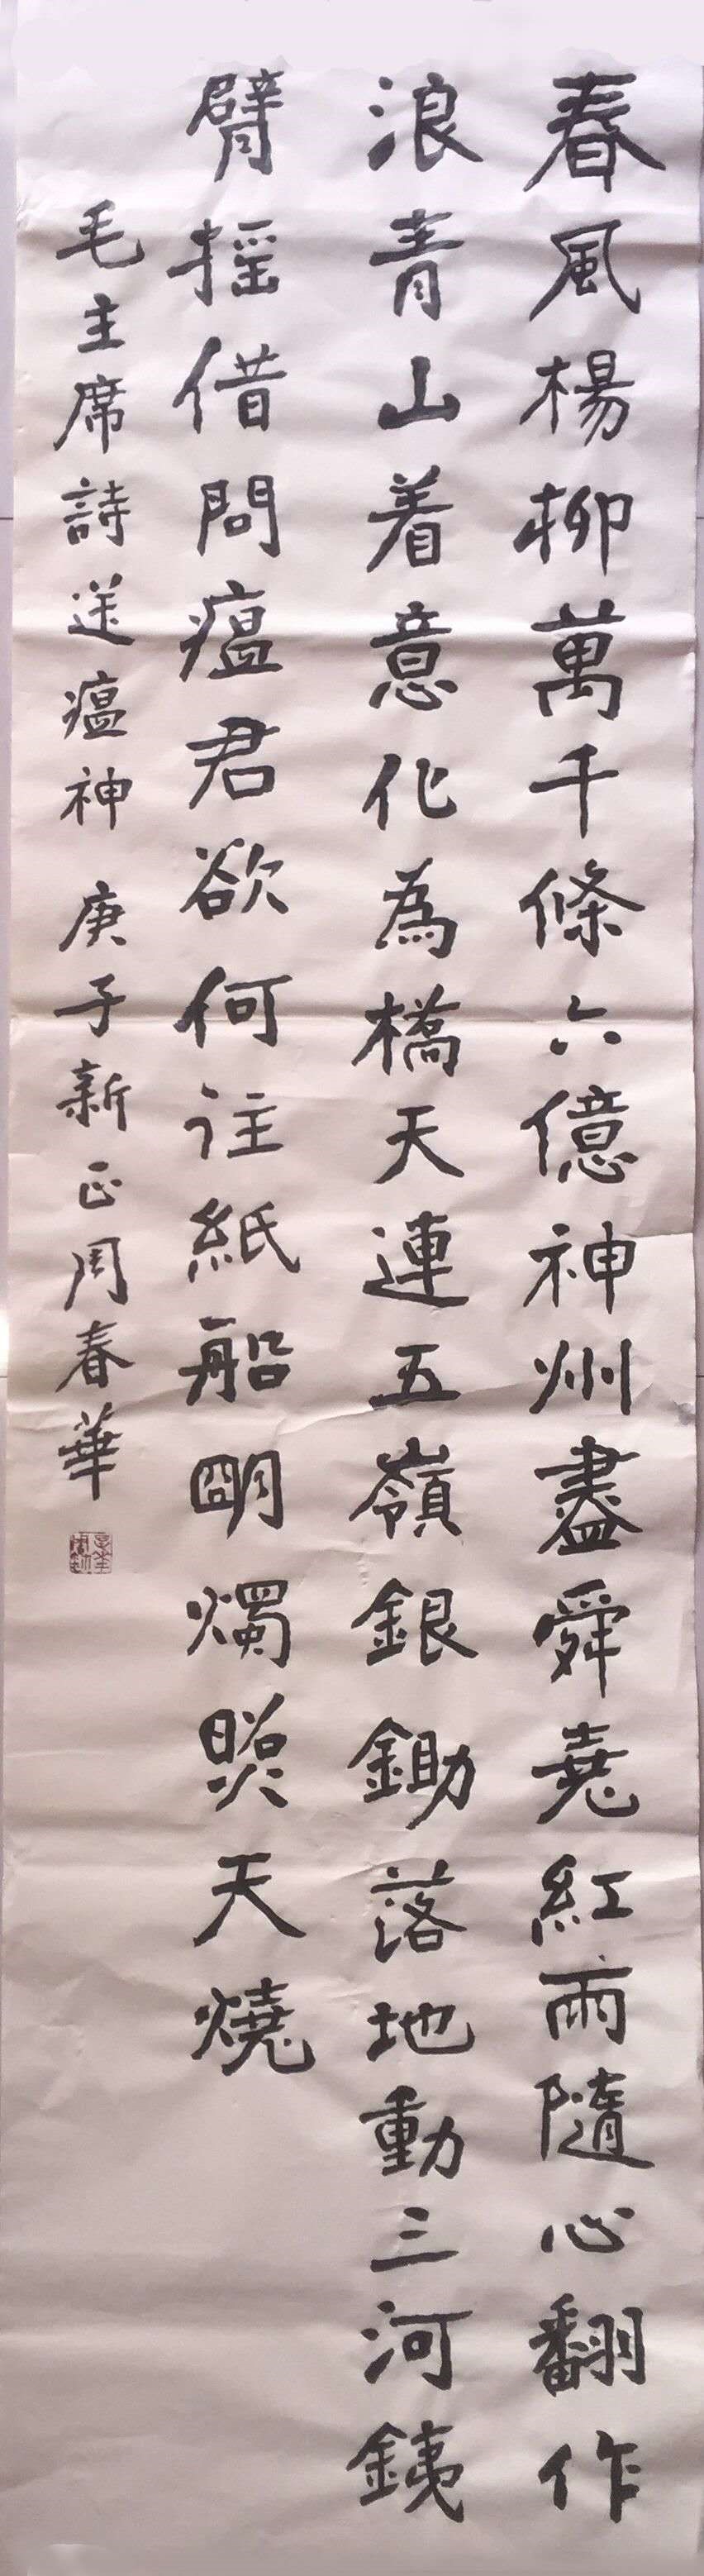 春風楊柳萬千條六億神州盡舜堯紅雨隨心翻作
浪青山着意化為橋天連五嶺銀鋤落地動三河銕
臂摇借問瘟君欲何往紙船明燭照天燒
毛主席詩送瘟神 庚子新正周春華